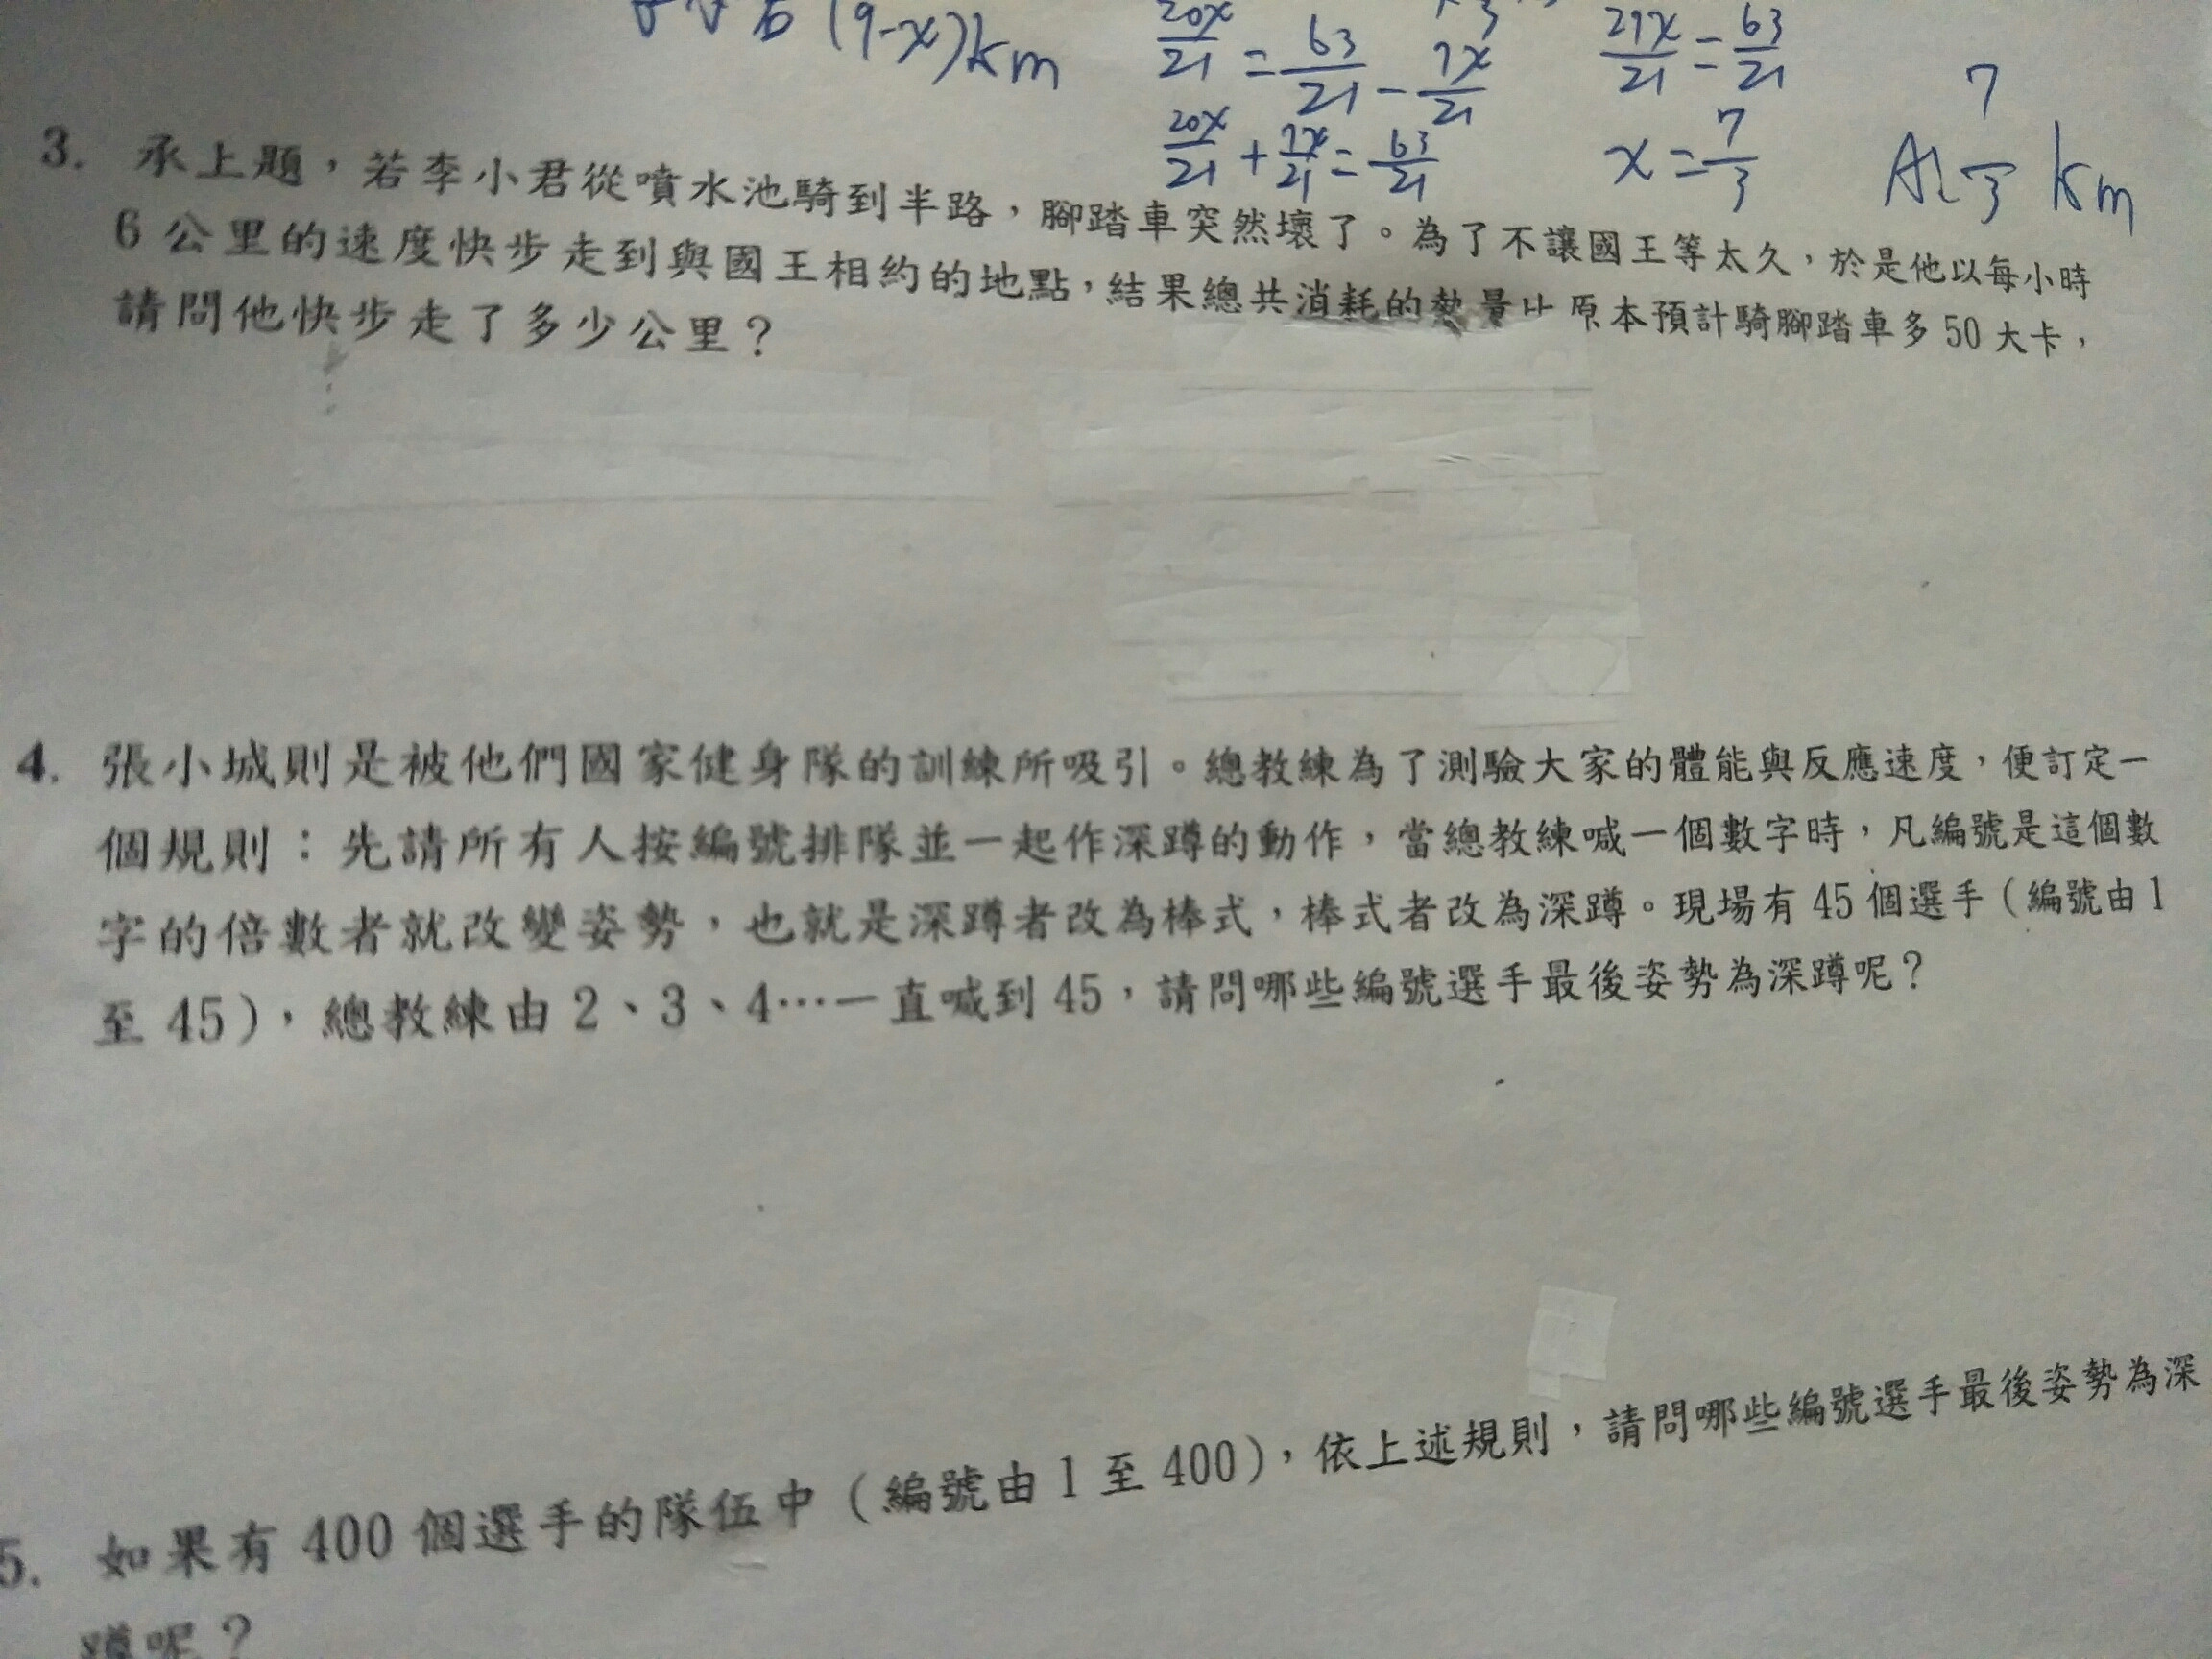 (9-x)km
20x/21 = 63/21 - 7x/21
20x/21 + 7x/21 = 63/21
27x/21 = 63/21
x = 7/3
A: 7/3 km
3. 承上題，若李小君從噴水池騎到半路，腳踏車突然壞了。為了不讓國王等太久，於是他以每小時
6 公里的速度快步走到與國王相約的地點，結果總共消耗的熱量比原本預計騎腳踏車多 50 大卡，
請問他快步走了多少公里？
4. 張小城則是被他們國家健身隊的訓練所吸引。總教練為了測驗大家的體能與反應速度，便訂定一
個規則：先請所有人按編號排隊並一起作深蹲的動作，當總教練喊一個數字時，凡編號是這個數
字的倍數者就改變姿勢，也就是深蹲者改為棒式，棒式者改為深蹲。現場有 45 個選手（編號由 1
至 45），總教練由 2、3、4…一直喊到 45，請問哪些編號選手最後姿勢為深蹲呢？
5. 如果有 400 個選手的隊伍中（編號由 1 至 400），依上述規則，請問哪些編號選手最後姿勢為深
蹲呢？